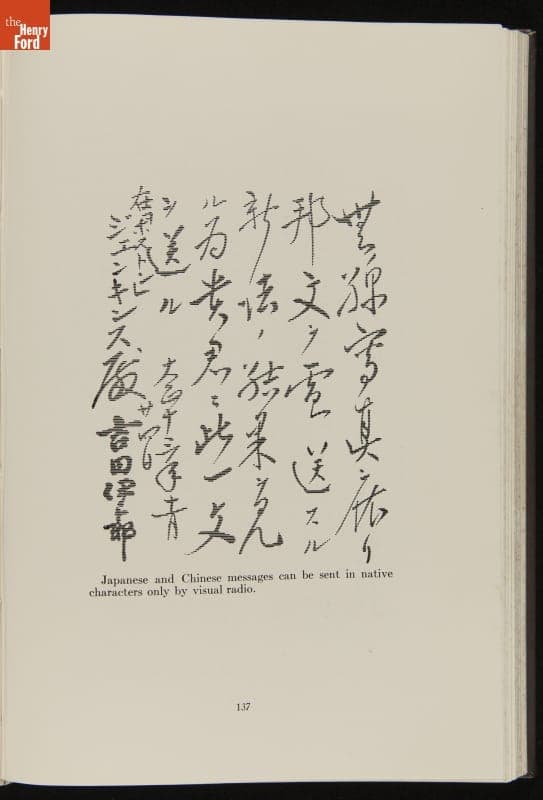 the
Henry
Ford
無線写真ニ依リ
邦文ヲ電送スル
新法ノ結果ヲ見
ル為貴君ニ此一文
ヲ送ル
大正十三年
廿四日
在ボストン
ジェンキンス殿
吉田伊郎
Japanese and Chinese messages can be sent in native
characters only by visual radio.
137